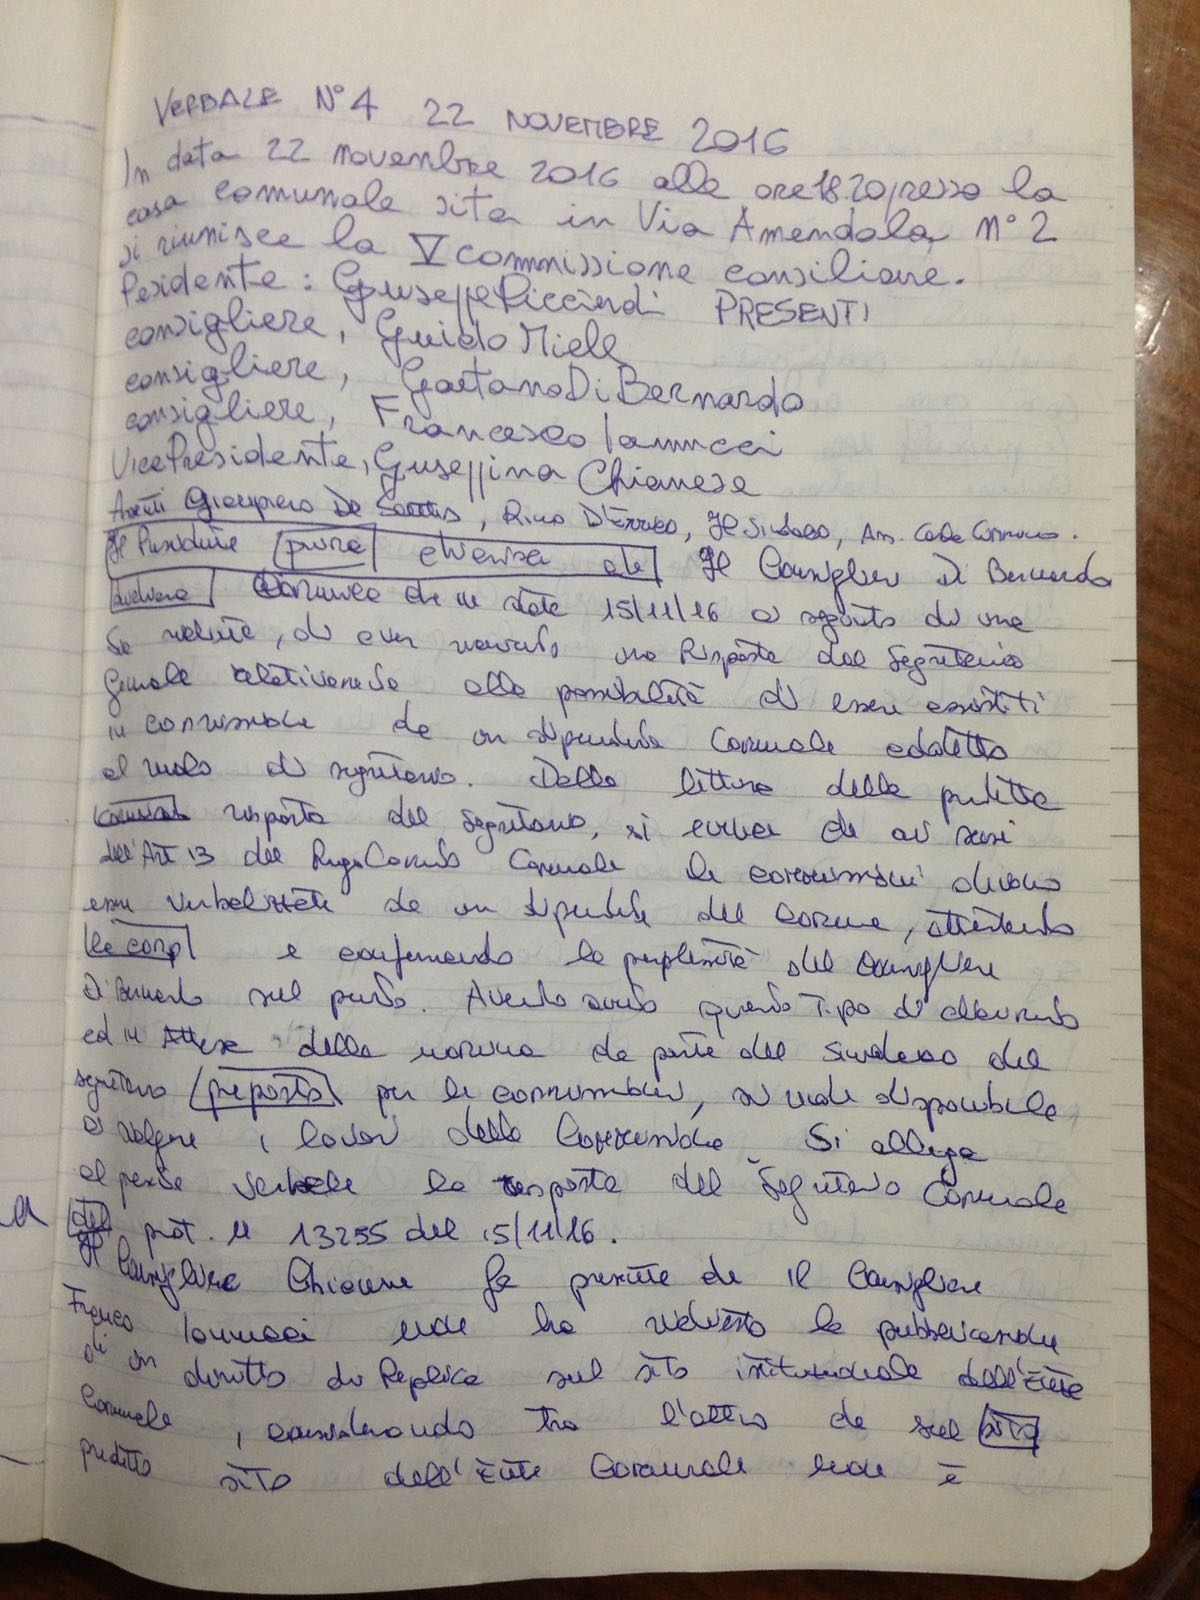 VERBALE N°4 22 NOVEMBRE 2016
In data 22 novembre 2016 alle ore 18.20 presso la
casa comunale sita in Via Amendola, n° 2
si riunisce la V commissione consiliare.
Pesidente: Giuseppe Ricciardi PRESENTI
consigliere, Guido Miele
consigliere, Gaetano Di Bernardo
consigliere, Francesco Iannucci
Vice Presidente, Giuseppina Chianese
Assenti Giampiero De , Rino D'Errico, Il Sindaco, Ass.
Il Presidente prima che Il Consigliere Di Bernardo
comunica che in data 15/11/16 a seguito di una
sua richiesta, di aver ricevuto una Risposta dal Segretario
Generale relativamente alla possibilità di essere assistiti
in commissione da un dipendente Comunale addetto
al ruolo di segretario. Dalla lettura della predetta
risposta del Segretario, si evince che ai sensi
dell'Art 13 del Regolamento Comunale le commissioni devono
essere verbalizzate da un dipendente del Comune, attestando
e confermando le perplessità del Consigliere
Di Bernardo sul punto. Avendo avuto questo Tipo di chiarimento
ed in attesa della nomina da parte del Sindaco del
segretario preposto per le commissioni, si rende disponibile
a svolgere i lavori della Commissione. Si allega
al presente verbale la risposta del Segretario Comunale
del prot. n 13255 del 15/11/16.
Il Consigliere Chianese fa presente che il Consigliere
Franco Iannucci ha richiesto la pubblicazione
di un diritto di Replica sul sito istituzionale dell'Ente
Comunale, considerando tra l'altro che sul sito
predetto sito dell'Ente Comunale è